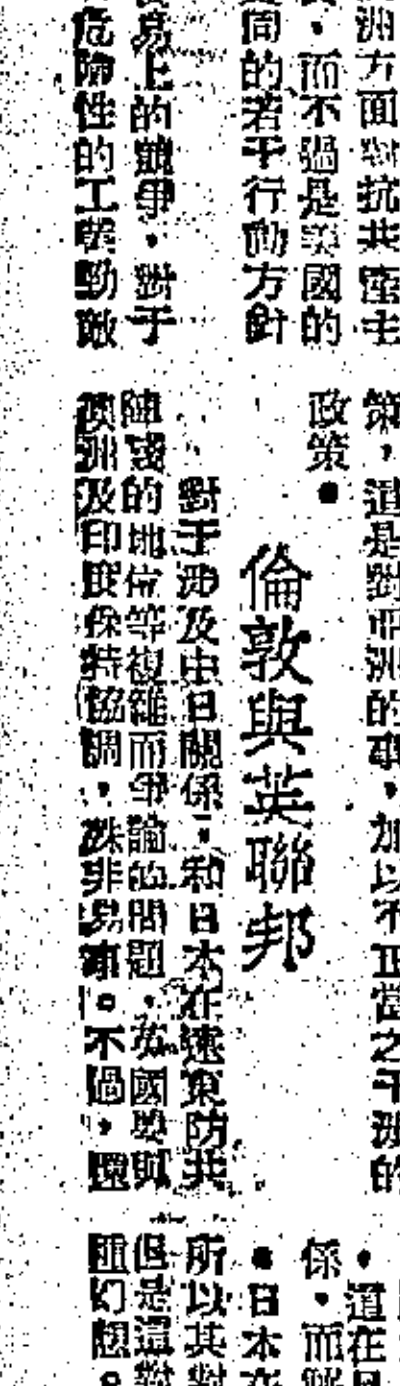 洲方面對抗共產主
而不過是美國的
同的若干行動方針
易上的競爭，對于
危險性的工業勁敵
策，這是對亞洲的事，加以不正當之干涉的
政策。
倫敦與英聯邦
對于涉及中日關係，和日本在遠東防共
陣線的地位等複雜而爭論的問題，英國要與
澳洲及印度保持協調，殊非易事。不過，還
這在
係，而
日本
所以其對
但是這對
種幻想。